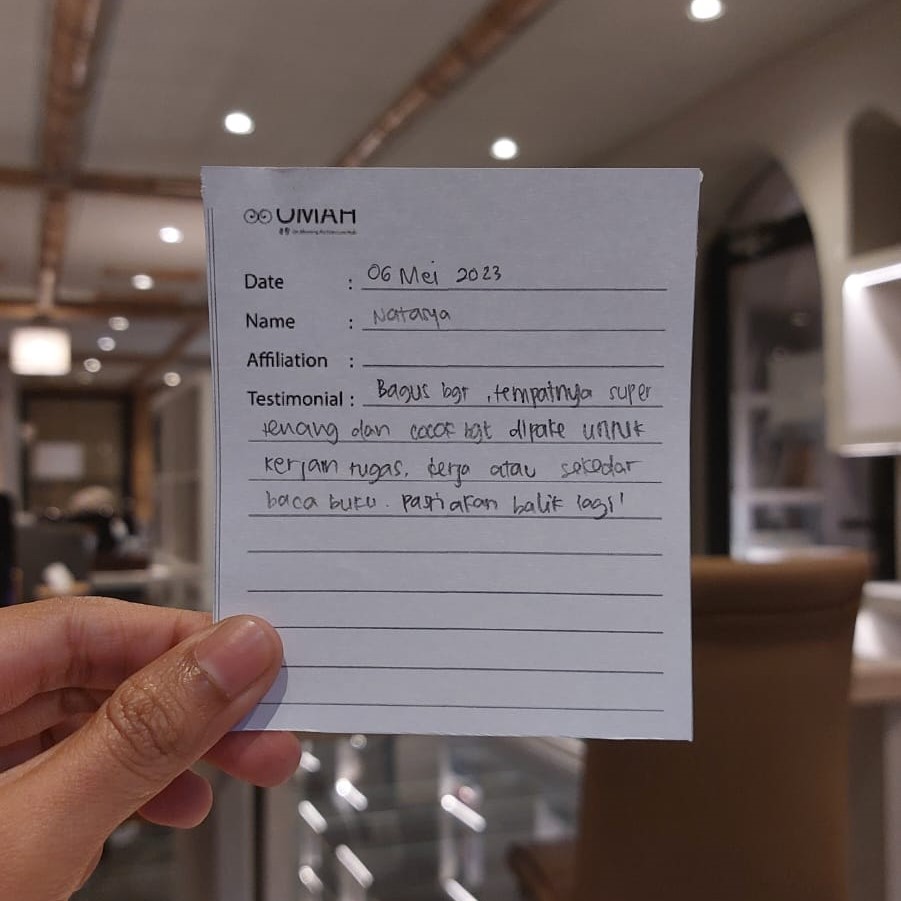 OMAH
Date : 06 Mei 2023
Name : Natasya
Affiliation :
Testimonial : Bagus bgt, tempatnya super
tenang dan cocok bgt dipake untuk
kerjain tugas, kerja atau sekedar
baca buku. Pasti akan balik lagi!